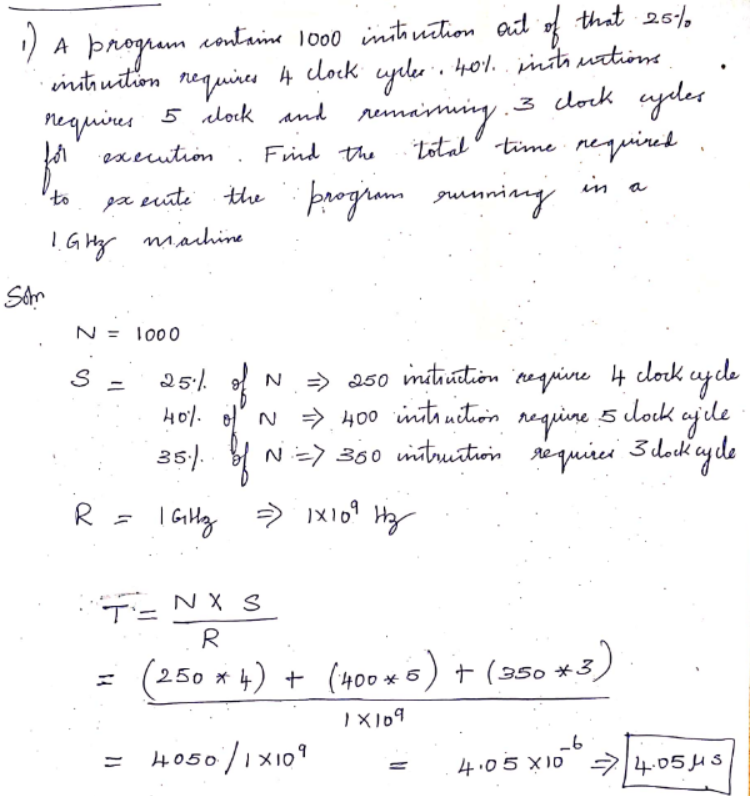 1) A program contains 1000 instruction out of that 25%
instruction requires 4 clock cycles. 40% instructions
requires 5 clock and remaining 3 clock cycles
for execution. Find the total time required
to execute the program running in a
1 GHz machine
Soln
N = 1000
S = 25% of N => 250 instruction require 4 clock cycle
40% of N => 400 instruction require 5 clock cycle
35% of N => 350 instruction requires 3 clock cycle
R = 1 GHz => 1x10⁹ Hz
T = N X S
R
= (250 * 4) + (400 * 5) + (350 * 3)
1 X 10⁹
= 4050 / 1 X 10⁹ = 4.05 X 10⁻⁶ => 4.05 μs